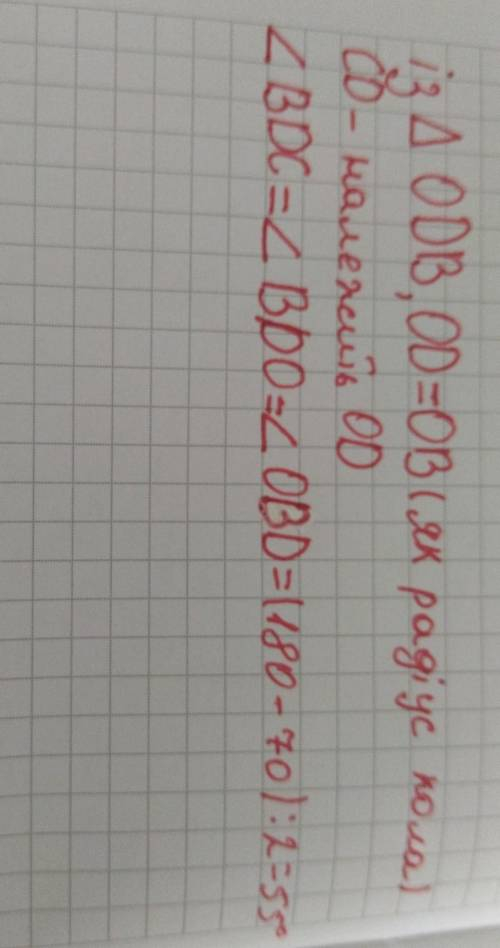 із Δ ODB, OD=OB (як радіус кола)
CD - належить OD
∠BDC=∠BDO=∠OBD=(180-70):2=55°